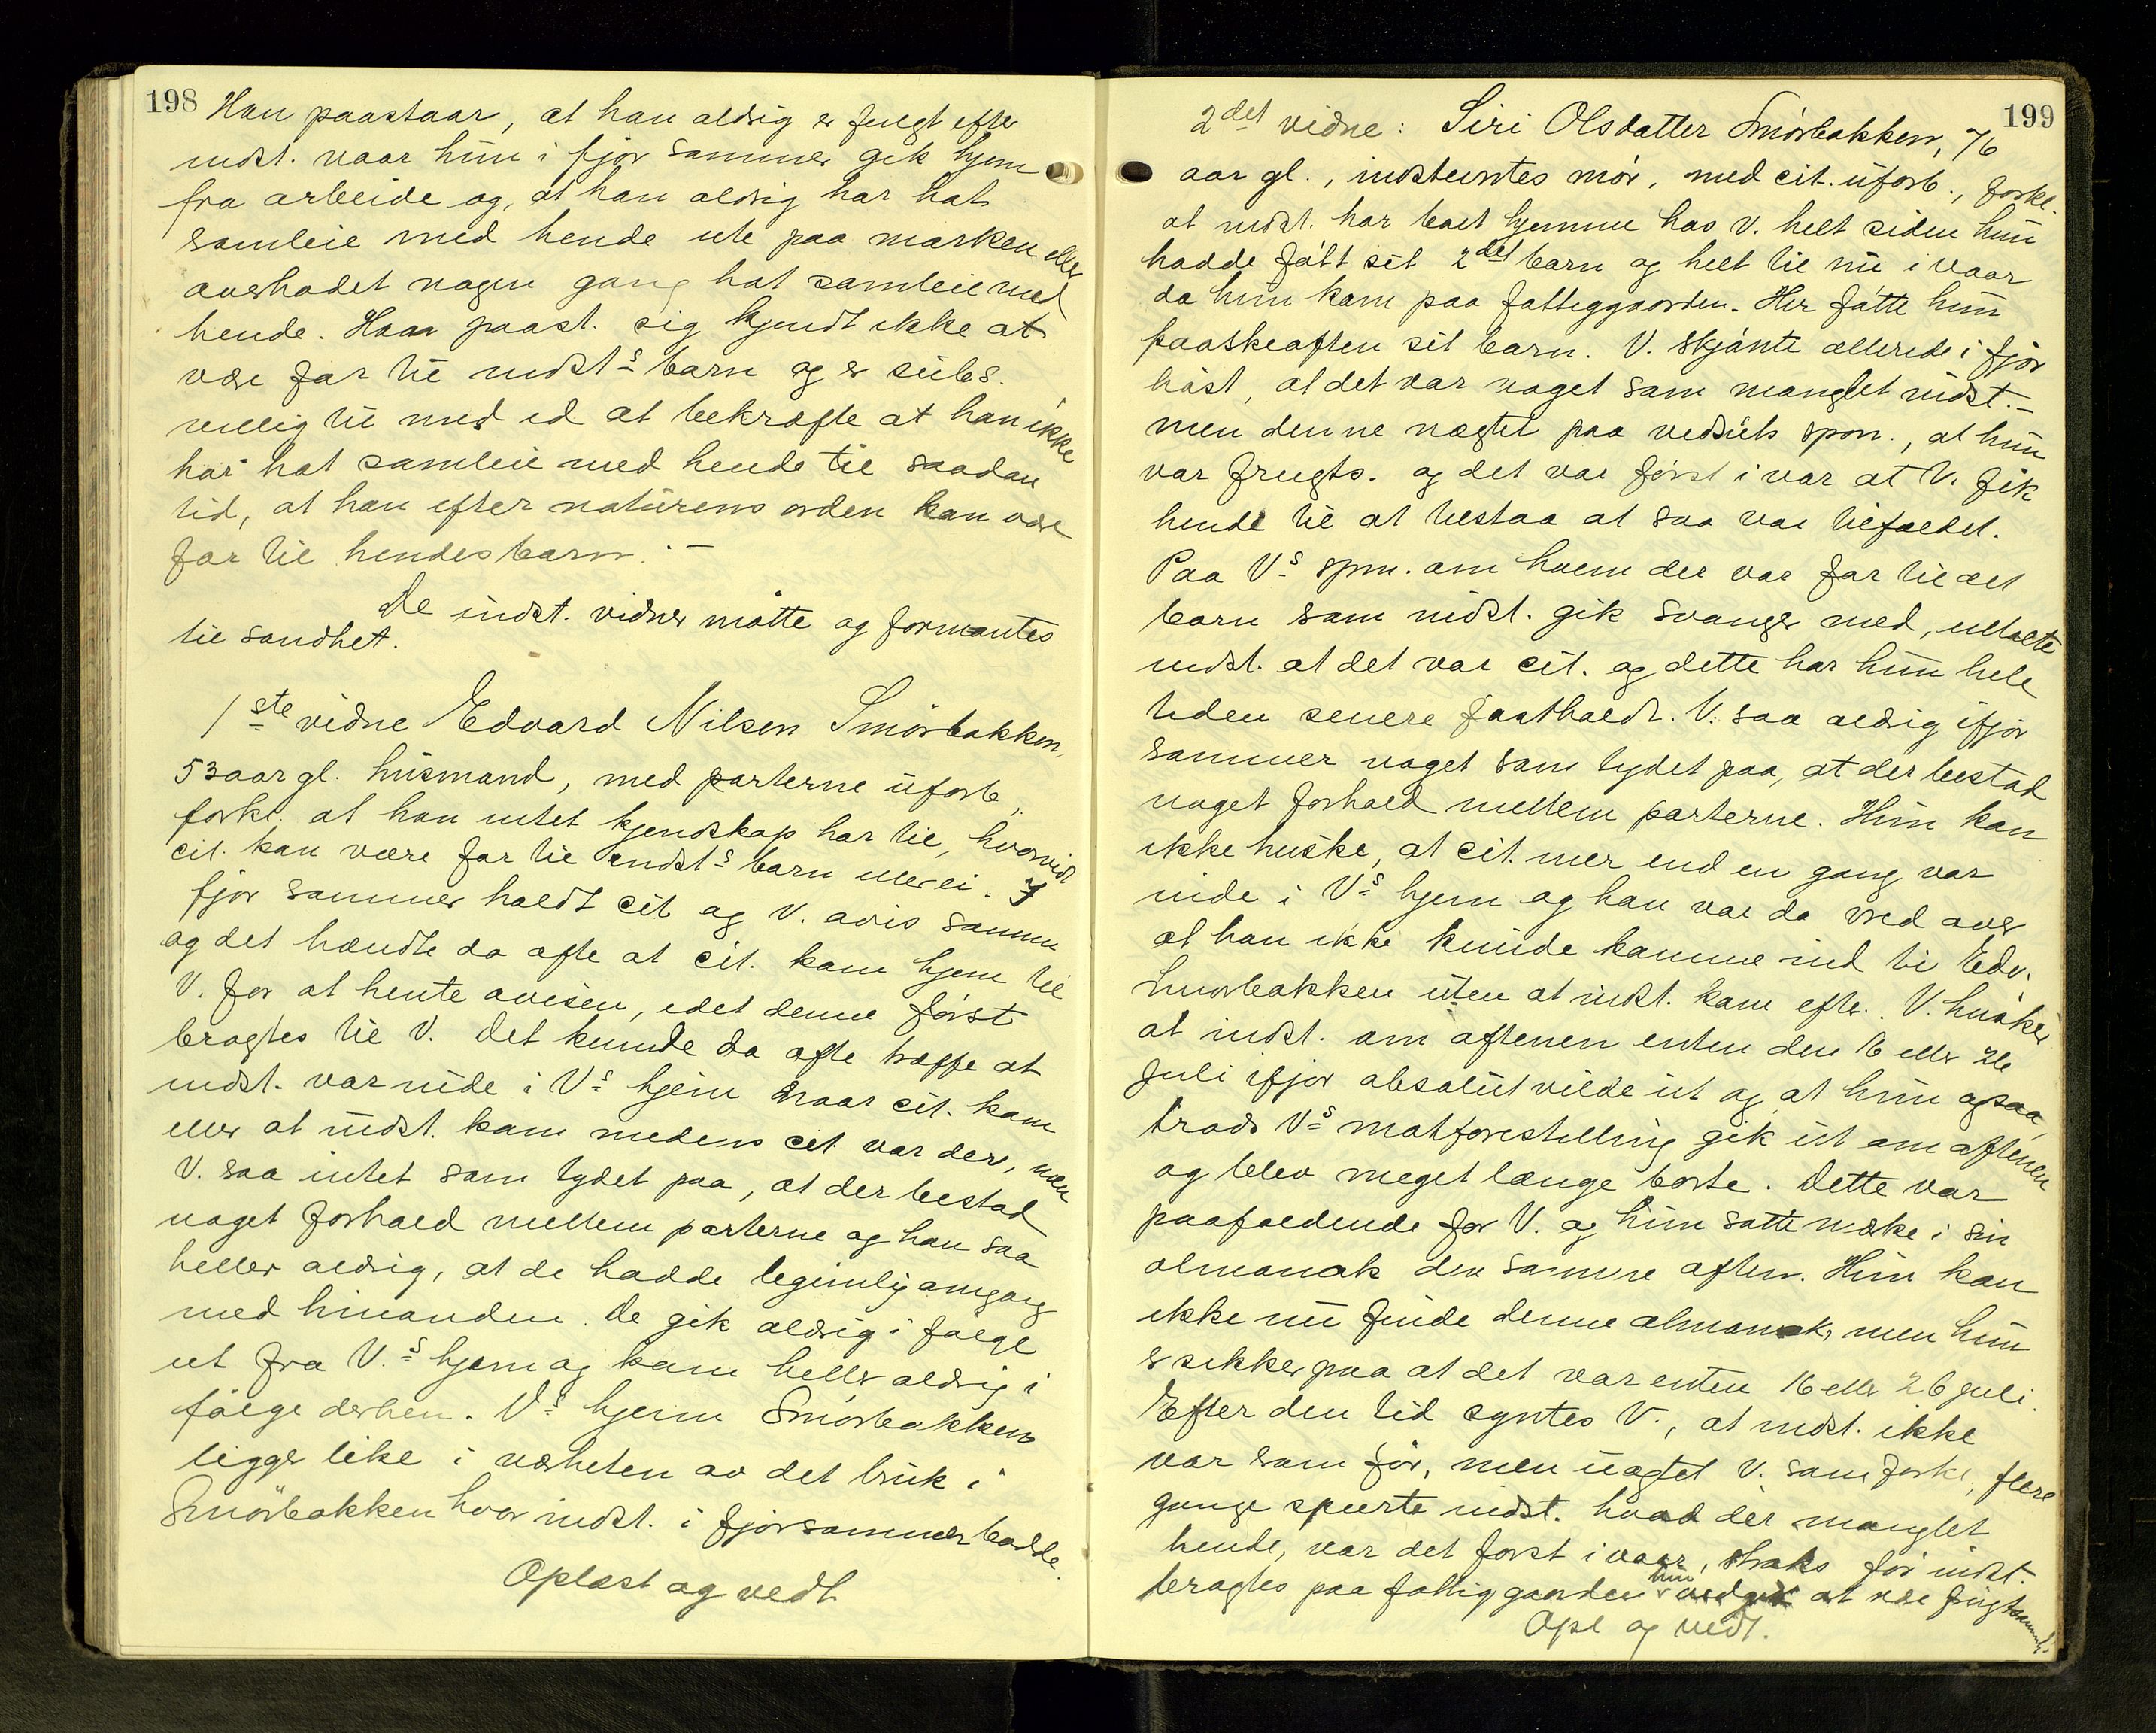 198
Han paastaar, at han aldrig er fulgt efter
indst. naar hun i fjor sommer gik hjem
fra arbeide og, at han aldrig har hat
samleie med hende ute paa marken eller
overhodet nogen gang hat samleie med
hende. Han paast. sig kjendt ikke at
være far til indst.s barn og er subs.
villig til med ed at bekræfte at han ikke
har hat samleie med hende til saadan
tid, at han efter naturens orden kan være
far til hendes barn. –
De indst. vidner møtte og formantes
til sandhet.
1ste vidne Edvard Nilsen Smørbakken,
53 aar gl. husmand, med parterne uforb.,
forkl. at han intet kjendskap har til, hvorvidt
cit. kan være far til indst.s barn eller ei. I
fjor sommer holdt cit. og V. avis sammen
og det hændte da ofte at cit. kom hjem til
V. for at hente avisen, idet denne først
bragtes til V. Det kunde da ofte træffe at
indst. var inde i V.s hjem naar cit. kom
eller at indst. kom medens cit var der, men
V. saa intet som tydet paa, at der bestod
noget forhold mellem parterne og han saa
heller aldrig, at de hadde legemlig omgang
med hinanden. De gik aldrig i følge
ut fra V.s hjem og kom heller aldrig i
følge derhen. V.s hjem Smørbakken
ligger like i nærheten av det bruk i
Smørbakken hvor indst. i fjorsommer bodde.
Oplæst og vedt
199
2det vidne: Siri Olsdatter Smørbakken, 76
aar gl., indstevntes mor, med cit. uforb., forkl.
at indst. har boet hjemme hos V. helt siden hun
hadde født sit 2det barn og helt til nu i vaar
da hun kom paa fattiggaarden. Her fødte hun
paaskeaften sit barn. V. skjønte allerede i fjor
høst, at det var noget som manglet indst. –
men denne nægtet paa vedsuts spm., at hun
var frugts. og det var først i var at V. fik
hende til at tilstaa at saa var tilfældet.
Paa V.s spm. om hvem der var far til det
barn som indst. gik svanger med, uttalte
indst. at det var cit. og dette har hun hele
tiden senere fastholdt. V. saa aldrig ifjor
sommer noget som tydet paa, at der bestod
noget forhold mellem parterne. Hun kan
ikke huske, at cit. mer end en gang var
inde i V.s hjem og han var da vred over
at han ikke kunde komme ind til Edv.
Smørbakken uten at indst. kom efter. V. husker
at indst. om aftenen enten den 16 eller 26
juli ifjor absolut vilde ut og at hun ogsaa,
trods V.s motforestilling gik ut om aftenen
og blev meget længe borte. Dette var
paafaldende for V. og hun satte mærke i sin
almanak den samme aften. Hun kan
ikke nu finde denne almanak, men hun
er sikker paa at det var enten 16 eller 26 juli.
Efter den tid syntes V., at indst. ikke
var som før, men uagtet V. som forkl., flere
gange spurte indst. hvad der manglet
hende, var det først i vaar, straks før indst.
bragtes paa fattiggaarden hun vedgik at være frugtsommelig.
Opl og vedt.